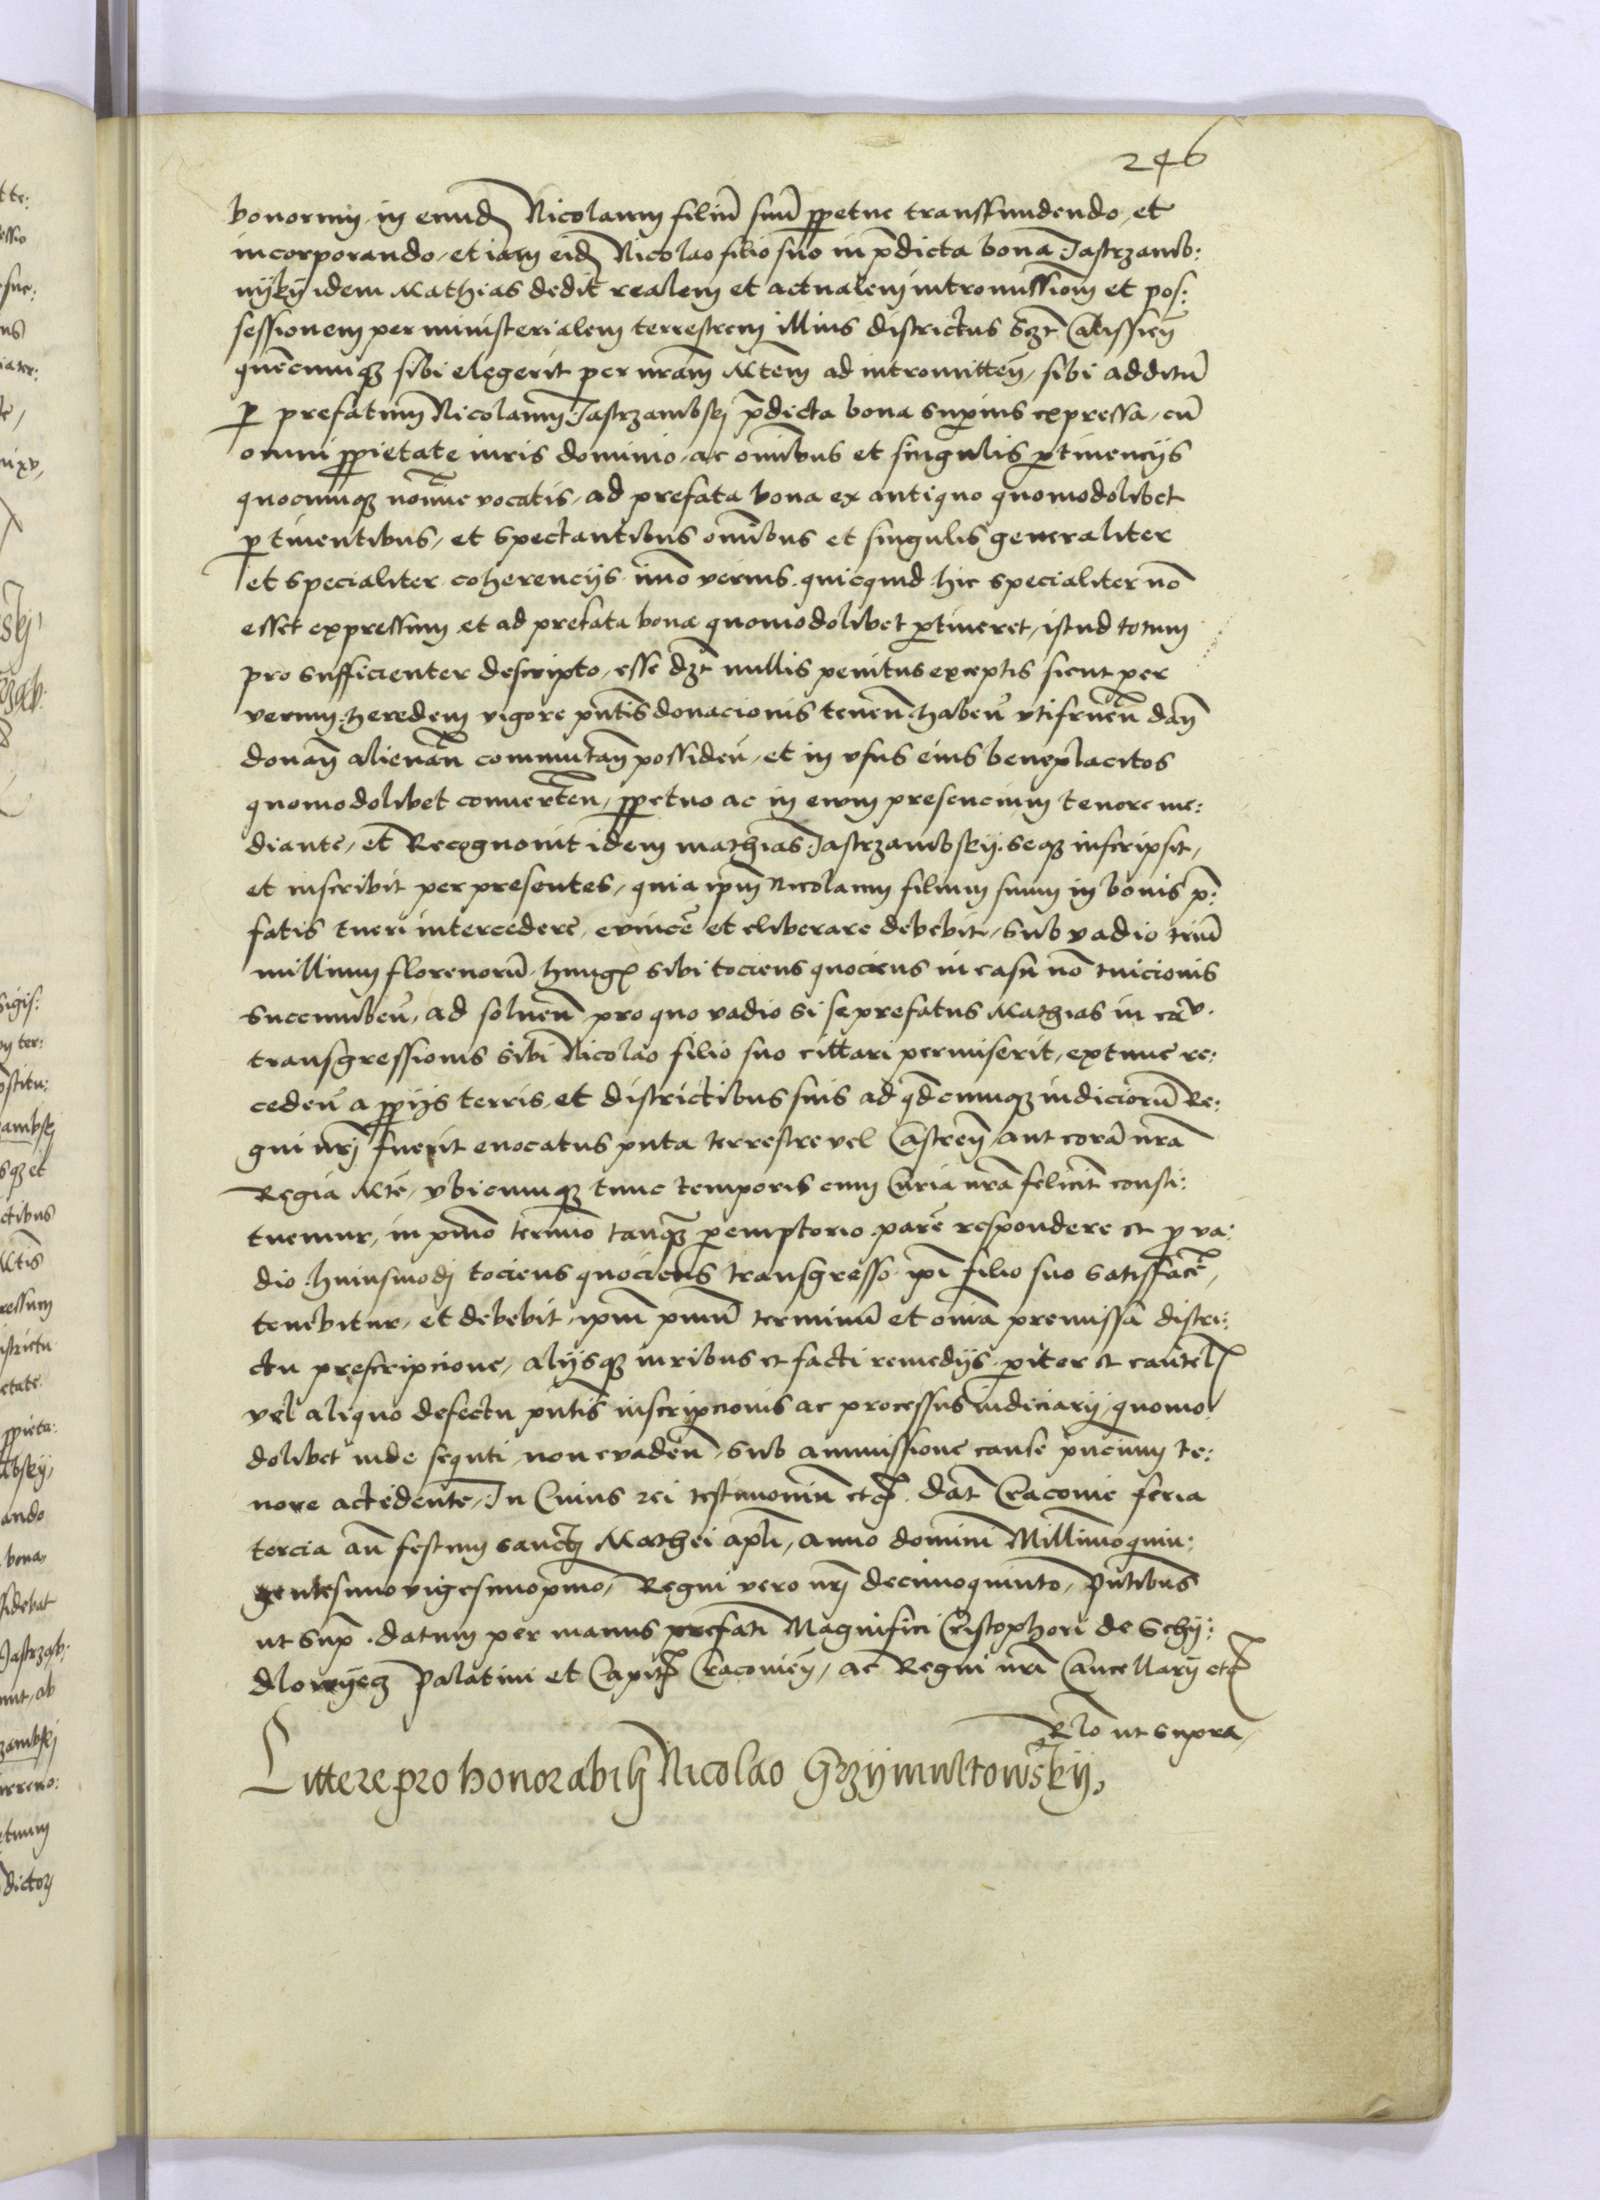 246
bonorum in eund Nicolaum filiū suū ppetue transfundendo, et
incorporando, et iam eid Nicolao filio suo in p̄dicta bona Jastrzamb:
nijky idem Mathias dedit realem et actualem intromissiom et pos:
sessionem per ministerialem terrestrem illius districtus Calissień
quēcumqz sibi elegerit per nram Mtem ad intromitteń, sibi additū
p prefatum Nicolaum Jastrzambskj p̄dicta bona superius expressa, cū
omni ppietate iuris dominio, ac omībus et singulis ptinencijs
quocumqz nomīe vocatis, ad prefata bona ex antiquo quomodolibet
ptinentibus, et spectantibus omībus et singulis generaliter
et specialiter coherencijs imo verius quicquid hic specialiter nō
esset expressum et ad prefata bona quomodolibet ptineret, istud totum
pro sufficienter descripto, esse dzt nullis penitus exceptis sicut per
verum heredem vigore pntis donacionis teneń habeń vtifrueń dań
donań alienań commutań possideń, et in vsus eius beneplacitos
quomodolibet conuerteń, ppetuo ac in eum presencium tenore me:
diante, et Recognouit idem mathias Jastrzambskij seqz inscripsit,
et inscribit per presentes, quia ipm Nicolaum filium suum in bonis p:
fatis tueri intercedere, euincē et eliberare debebit, sub vadio triū
millium florenorū hung sibi tociens quociens in casu nō tuicionis
succumbeń, ad solueń pro quo vadio si se prefatus Mathias in
transgressionis sibi Nicolao filio suo cittari permiserit, extunc re:
cedeń a ppijs terris et districtibus suis ad qdcumqz iudiciorū Re:
gni nrj fuerit euocatus puta terrestre vel Castreń aut corā nra
Regia Mte, vbicumqz tunc temporis cum Curia nra felicit consti:
tuemur, in pmo termīo tanqz peremptorio parē respondere et p va:
dio huiusmodj tociens quociens transgresso ipi filio suo satisfacē,
tenebitur, et debebit, ipm pmū terminū et omīa premissa distri:
ctu prescripcione, alijsqz iuribus et facti remedijs pariter et cautel
vel aliquo defectu pntis inscripcionis ac processus iudiciarij, quomo
dolibet inde sequti non euadeń, sub ammissione cause pncium te:
nore accedente, In Cuius rei testimoniū etc. Dat Cracouie feria
tercia an festum sanctj Mathei apli, Anno domini Millimoquin:
gentesimovigesimopmo, Regni vero nrj decimoquinto, pntibus
ut supra. datum per manus prefati Magnifici Cristophori de Schy:
dlowyecz Palatini et Capit Cracouień, ac Regni nri Cancellarij etc
Rlo ut supra,
Littere pro honorabili Nicolao Grzymultowskij,